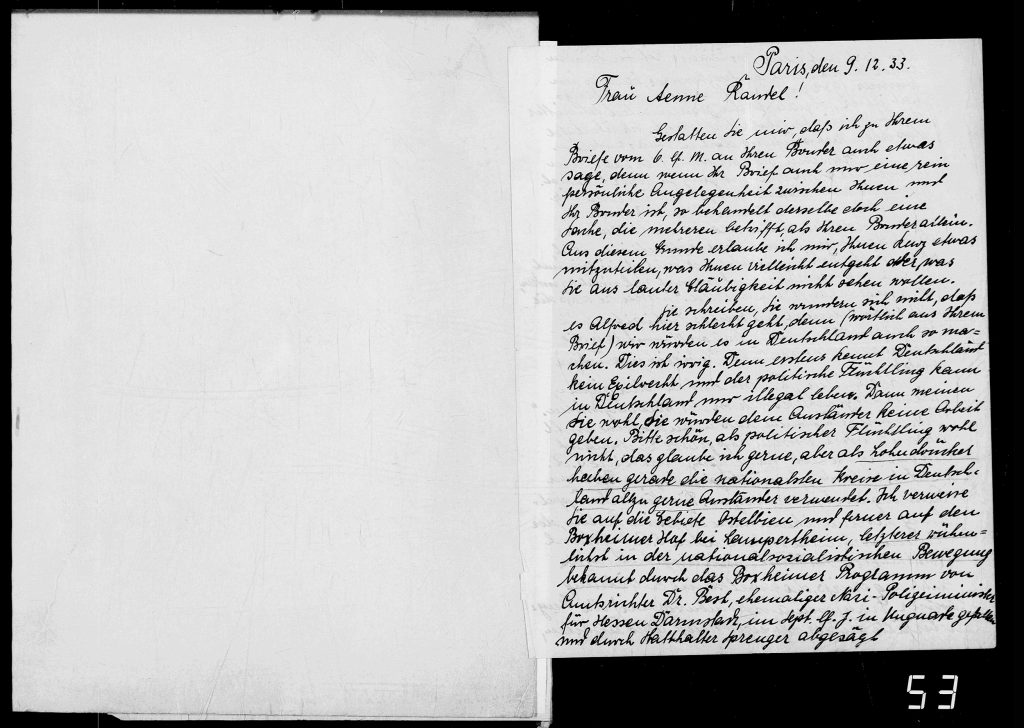 Paris, den 9. 12. 33.
Frau Aenne Kandel!
Gestatten Sie mir, daß ich zu Ihrem
Briefe vom 6. lf. M. an Ihren Bruder auch etwas
sage, denn wenn Ihr Brief auch nur eine rein
persönliche Angelegenheit zwischen Ihnen und
Ihr Bruder ist, so behandelt derselbe doch eine
Sache, die mehreren betrifft, als Ihren Bruder allein.
Aus diesem Grunde erlaube ich mir, Ihnen kurz etwas
mitzuteilen, was Ihnen vielleicht entgeht oder, was
Sie aus lauter Gläubigkeit nicht sehen wollen.
Sie schreiben, Sie wundern sich nicht, daß
es Alfred hier schlecht geht, denn (wörtlich aus Ihrem
Brief) wir würden es in Deutschland auch so ma=
chen. Dies ist irrig. Denn erstens kennt Deutschland
kein Exilrecht und der politische Flüchtling kann
in Deutschland nur illegal leben. Dann meinen
Sie wohl, Sie würden dem Ausländer keine Arbeit
geben. Bitte schön, als politischer Flüchtling wohl
nicht, das glaube ich gerne, aber als Lohndrücker
haben gerade die nationalsten Kreise in Deutsch=
land allzu gerne Ausländer verwendet. Ich verweise
Sie auf die Gebiete Ostelbien, und ferner auf den
Boxheimer Hof bei Lampertheim, letzterer rühm=
lichst in der nationalsozialistischen Bewegung
bekannt durch das Boxheimer Programm von
Amtsrichter Dr. Best, ehemaliger Nazi-Polizeiminister
für Hessen Darmstadt, im Sept. lf. J. in Ungnade gefallen
und durch Statthalter Sprenger abgesägt
53